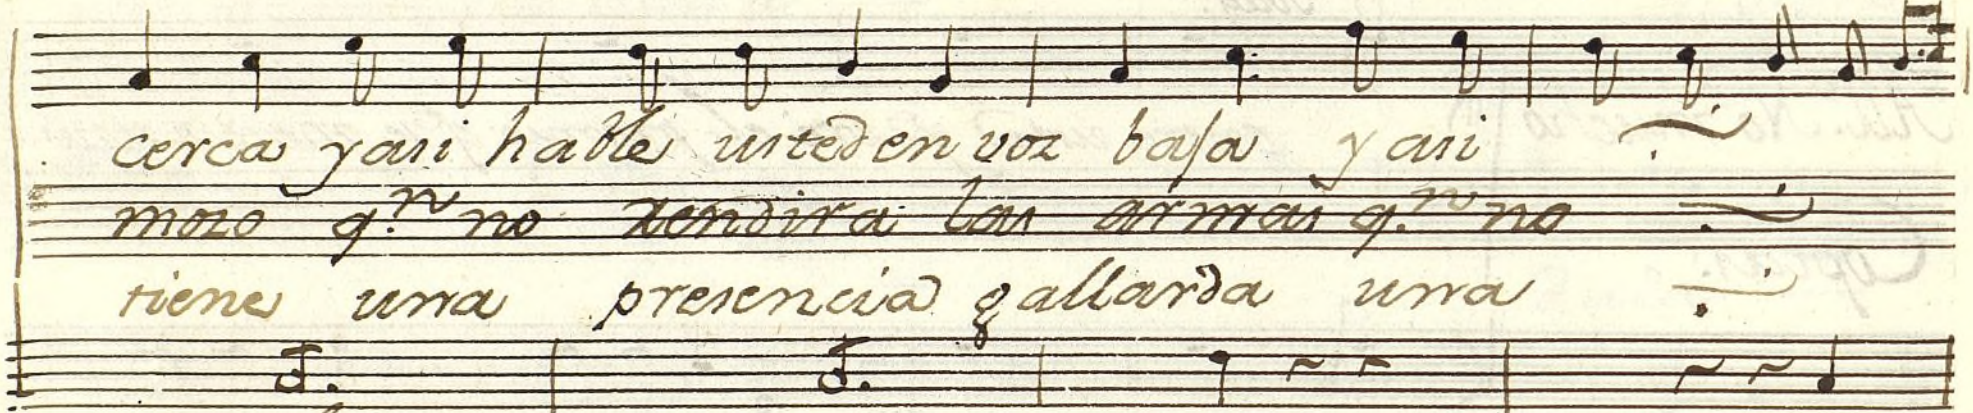 cerca y asi hable usted en voz baja y asi
mozo q.n no rendira las armas q.n no
tiene una presencia gallarda una